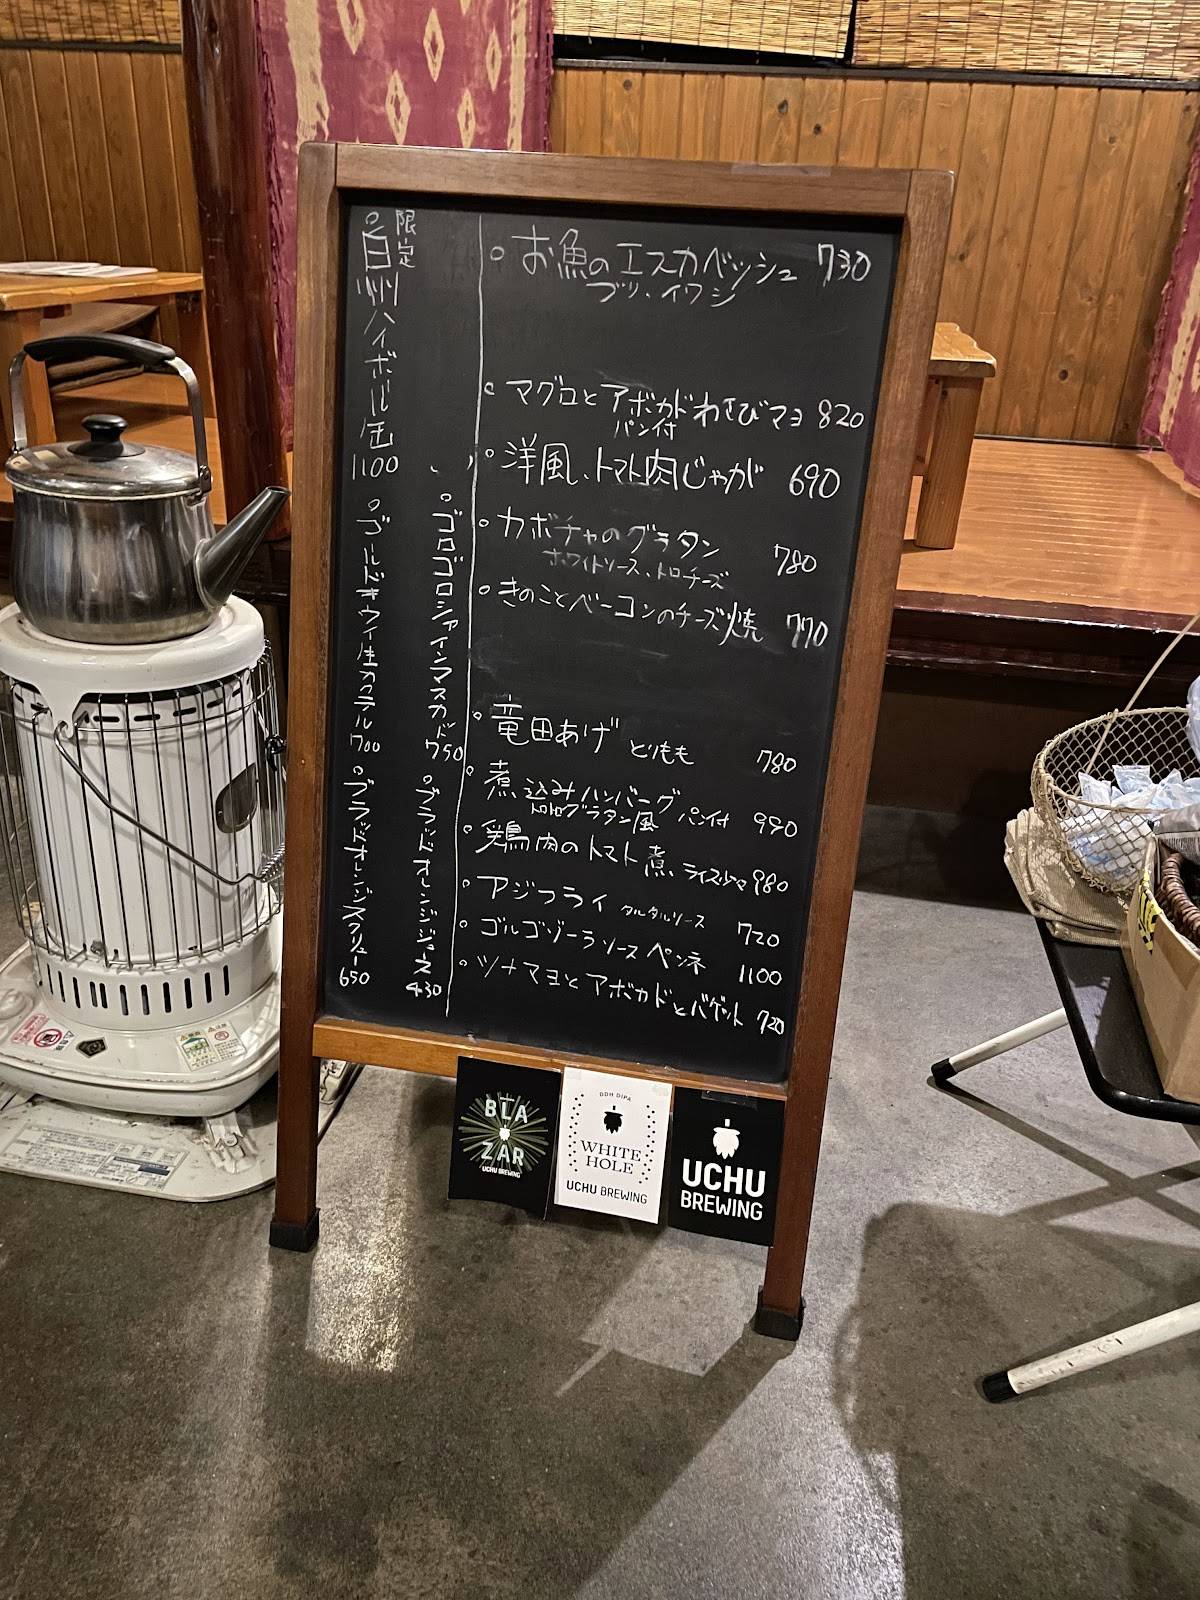 お魚のエスカベッシュ 730
ブリ、イワシ
マグロとアボカドわさびマヨ 820
パン付
洋風、トマト肉じゃが 690
カボチャのグラタン 780
ホワイトソース、トロチーズ
きのことベーコンのチーズ焼 770
竜田あげ とりもも 780
煮込みハンバーグ パン付 990
トロトログラタン風
鶏肉のトマト煮 ライス少々 980
アジフライ タルタルソース 720
ゴルゴンゾーラソース ペンネ 1100
ツナマヨとアボカドとバゲット 720
限定
白州ハイボール缶
1100
ゴロゴロシャインマスカット
750
ゴールドキウイ生カクテル
1700
ブラッドオレンジジュース
430
ブラッドオレンジスクリュー
650
BLA
ZAR
UCHU BREWING
DDH DIPA
WHITE
HOLE
UCHU BREWING
UCHU
BREWING